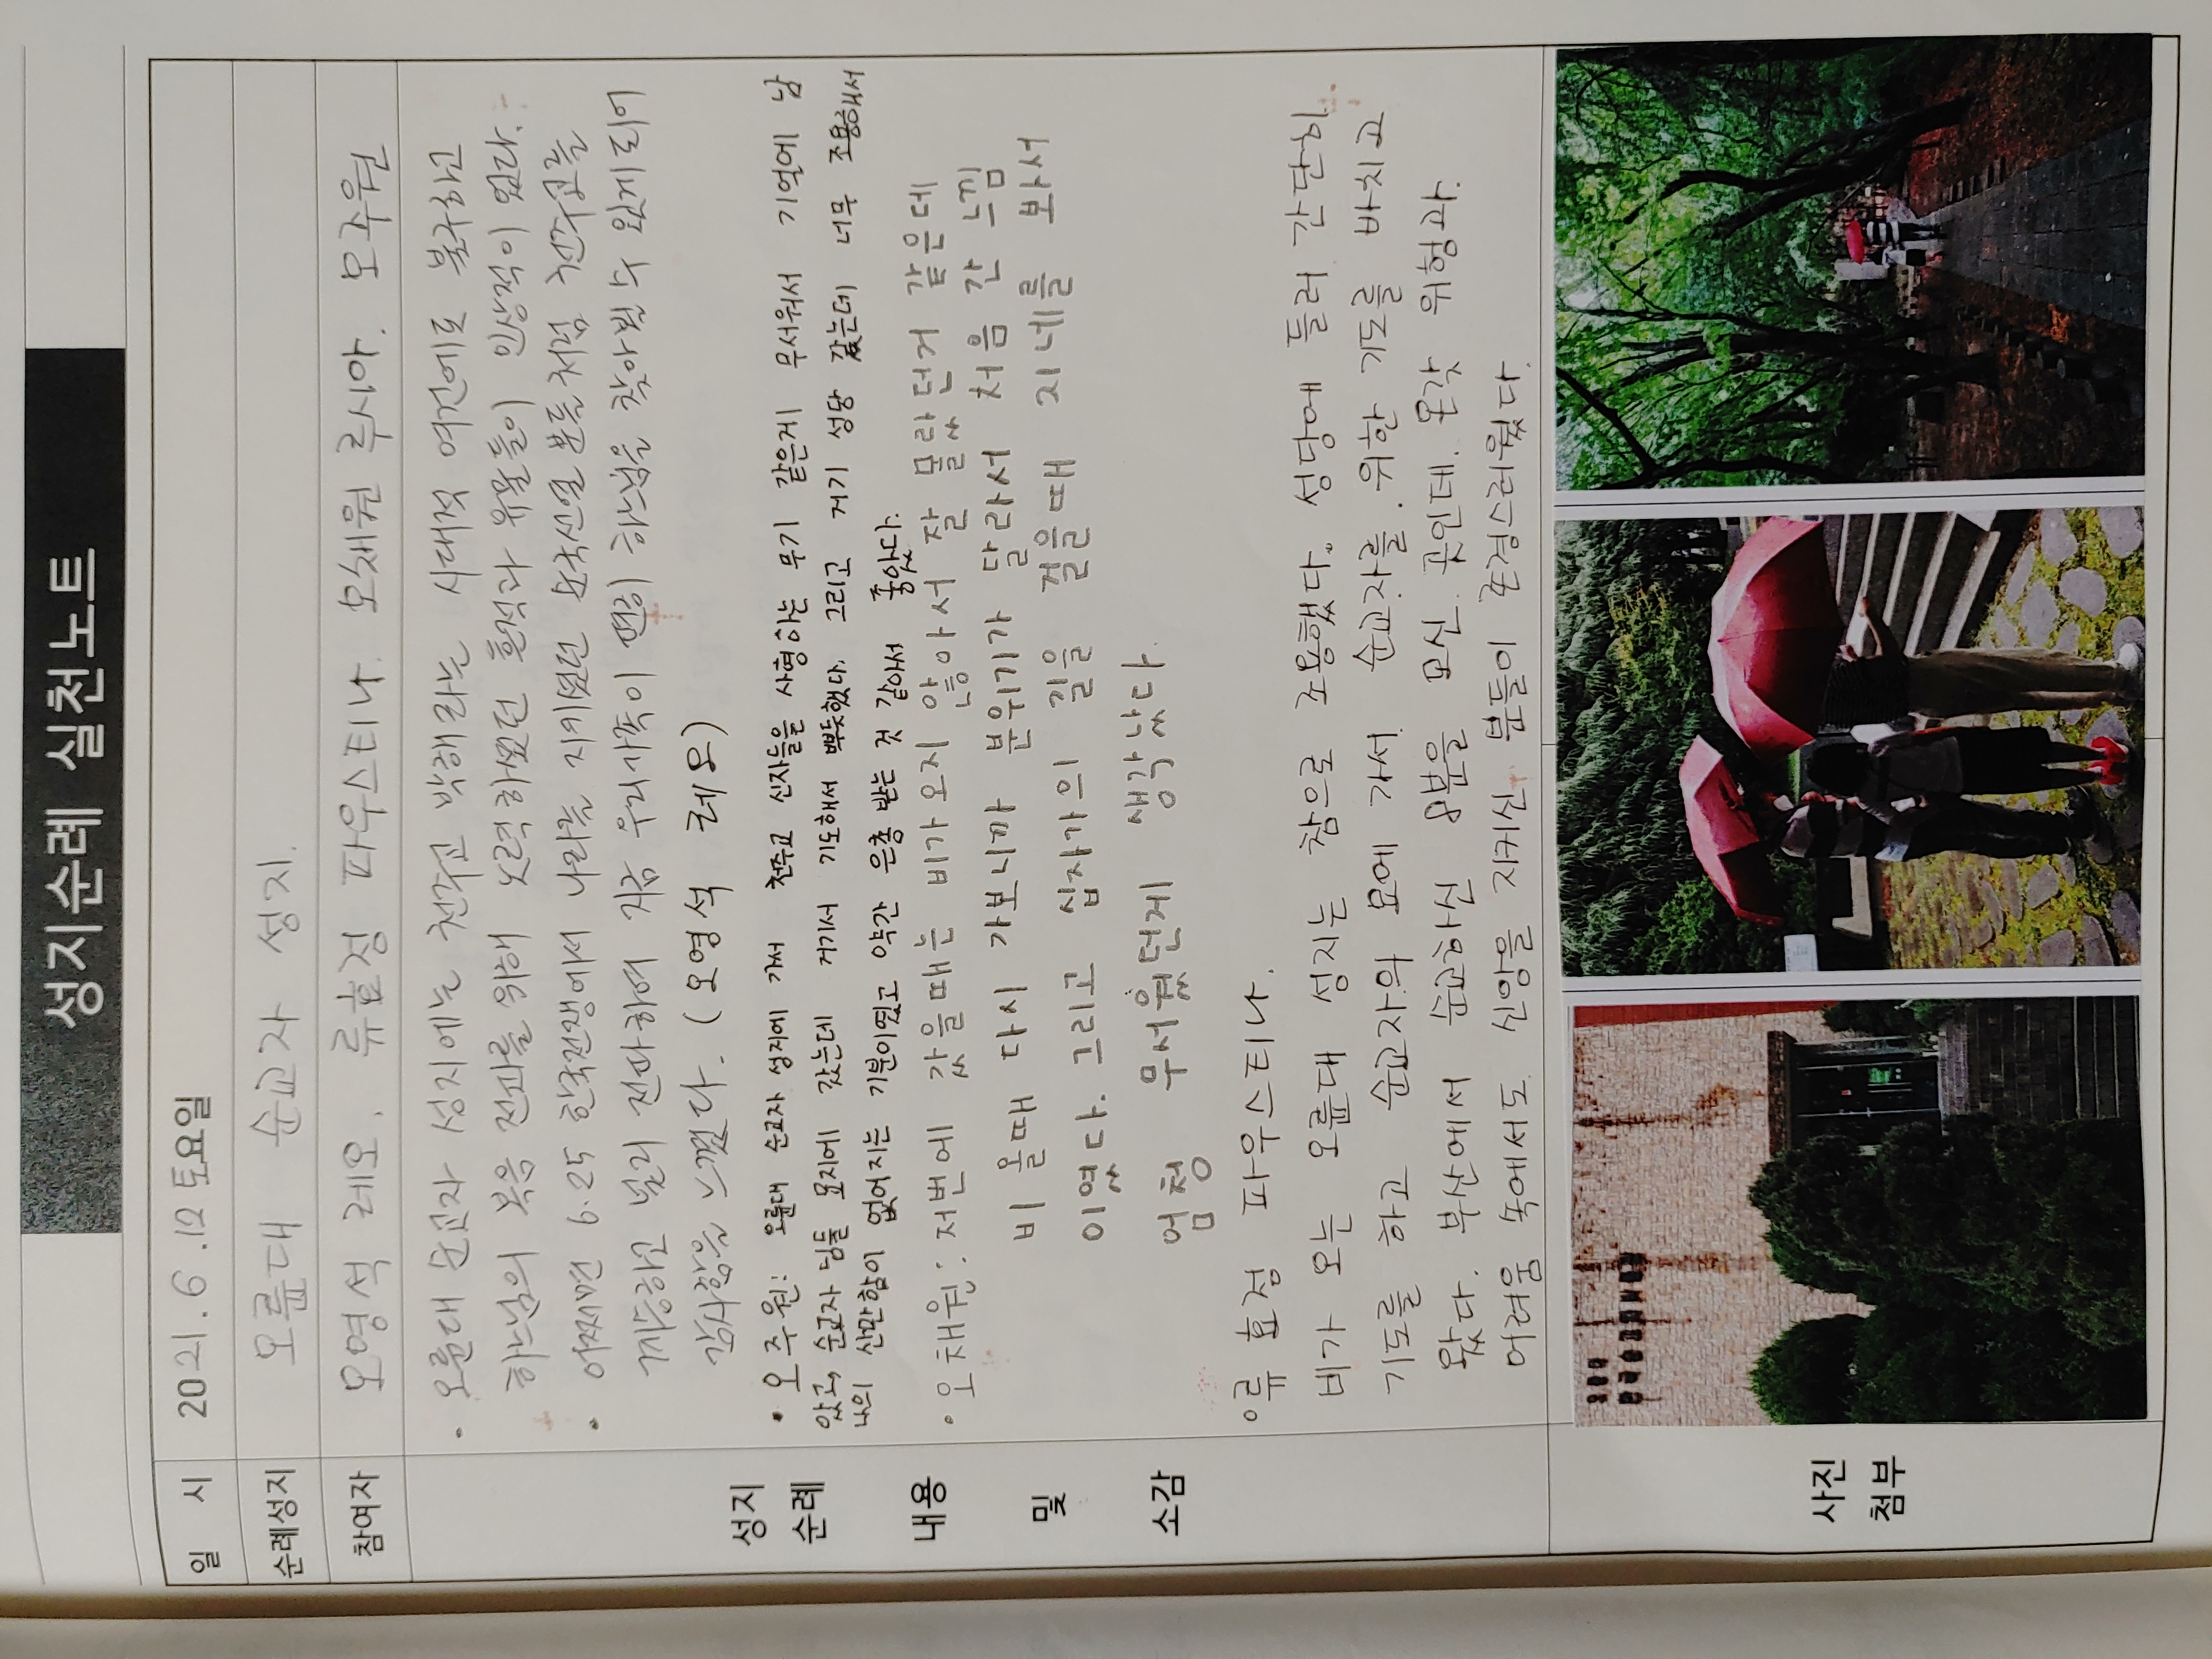 성지순례 실천노트
일 시 2021. 6. 12 토요일
순례성지 오륜대 순교자 성지.
참여자 오영석 레오. 류효정 파우스티나. 오채원 루시아. 오주원
성지
순례
내용
및
소감
• 오륜대 순교자 성지에는 천주교 박해라는 시대적 여건에도 불구하고
하느님의 복음 전파를 위해 노력하셨던 흔적과 유물들이 인상적이 었다.
• 어쩌면 6.25 한국전쟁에서 나라를 지키셨던 호국선열 분들처럼 천주교를
널리 전파하여 지금 우리가족이 편히 하느님을 찾아뵐 수 있게되어
감사함을 느꼈다. (오영석 레오)
• 오주원: 오륜대 순교자 성지에 가서 천주교 신자들을 사형하는 무기 같은게 무서워서 기억에 남
았고, 순교자 님들 묘지에 갔는데 거기서 기도해서 뿌듯했다. 그리고 거기 성당 갔는데 너무 조용해서
나의 산만함이 없어지는 기분이였고 약간 은총 받는 것 같아서 좋았다.
• 오채원: 저번에 갔을때는 비가오지 않아서 잘 몰랐던거 같은데
비 올때 다시 가보니까 분위기가 달라서 처음 간 느낌
이였다. 그리고 십자가의 길을 걸을때 지네를 봐서
엄청 무서웠던게 생각났다.
◦ 류효정 파우스티나.
비가 오는 오륜대 성지는 참으로 조용했다. 성당에 들러 간단히
기도를 하고 순교자의 묘에 가서 순교자를 위한 기도를 바치고
왔다. 부산에서 순교하신 8분을 모신 곳인데. 온갖 위험과.
어려움 속에서도 신앙을 지키신 분들이 존경스러웠다.
사진
첨부